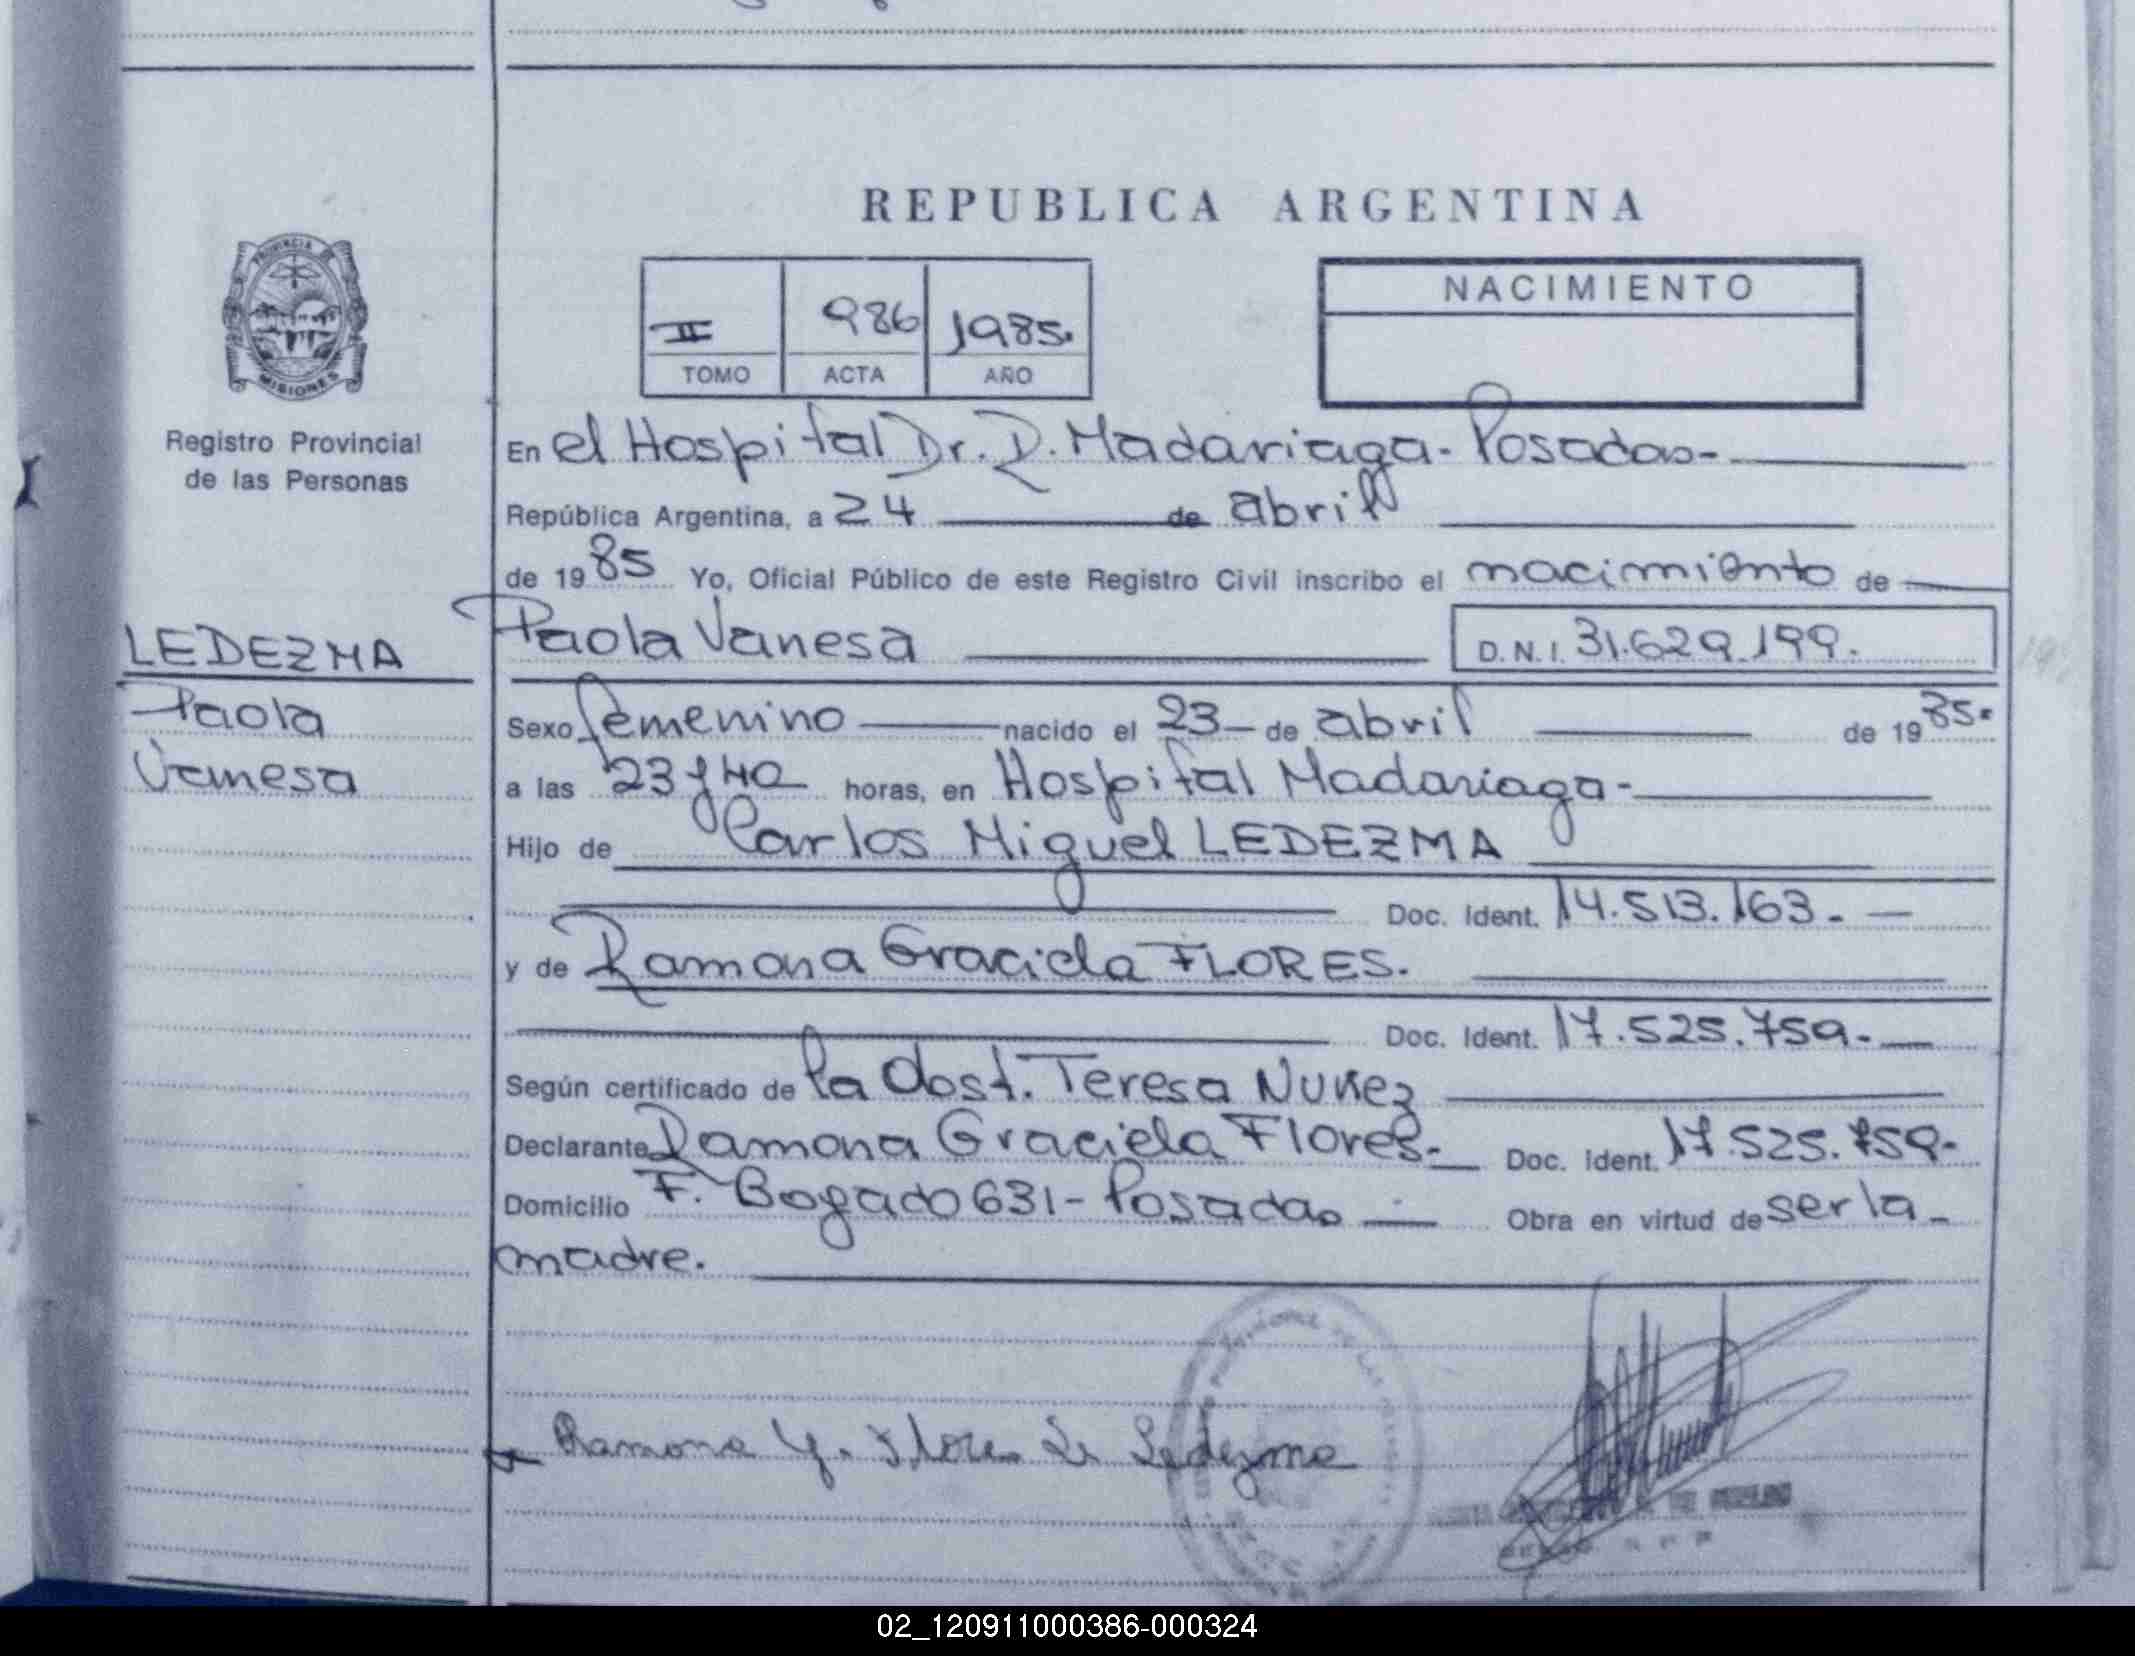 REPUBLICA ARGENTINA
PROVINCIA DE
MISIONES
Registro Provincial
de las Personas
II 986 1985.
TOMO ACTA AÑO
NACIMIENTO
En el Hospital Dr. R. Madariaga - Posadas -
República Argentina, a 24 de abril
de 1985 Yo, Oficial Público de este Registro Civil inscribo el nacimiento de
LEDEZMA
Paola
Vanesa
Paola Vanesa D.N.I. 31.629.199.
Sexo femenino nacido el 23 - de abril de 1985.
a las 23 y 40 horas, en Hospital Madariaga -
Hijo de Carlos Miguel LEDEZMA
Doc. Ident. 14.513.163. -
y de Ramona Graciela FLORES.
Doc. Ident. 17.525.759. -
Según certificado de la Obst. Teresa Nuñez
Declarante Ramona Graciela Flores. - Doc. Ident. 17.525.759 -
Domicilio F. Bogado 631 - Posadas - Obra en virtud de ser la -
madre.
Ramona G. Flores de Ledezma
02_120911000386-000324